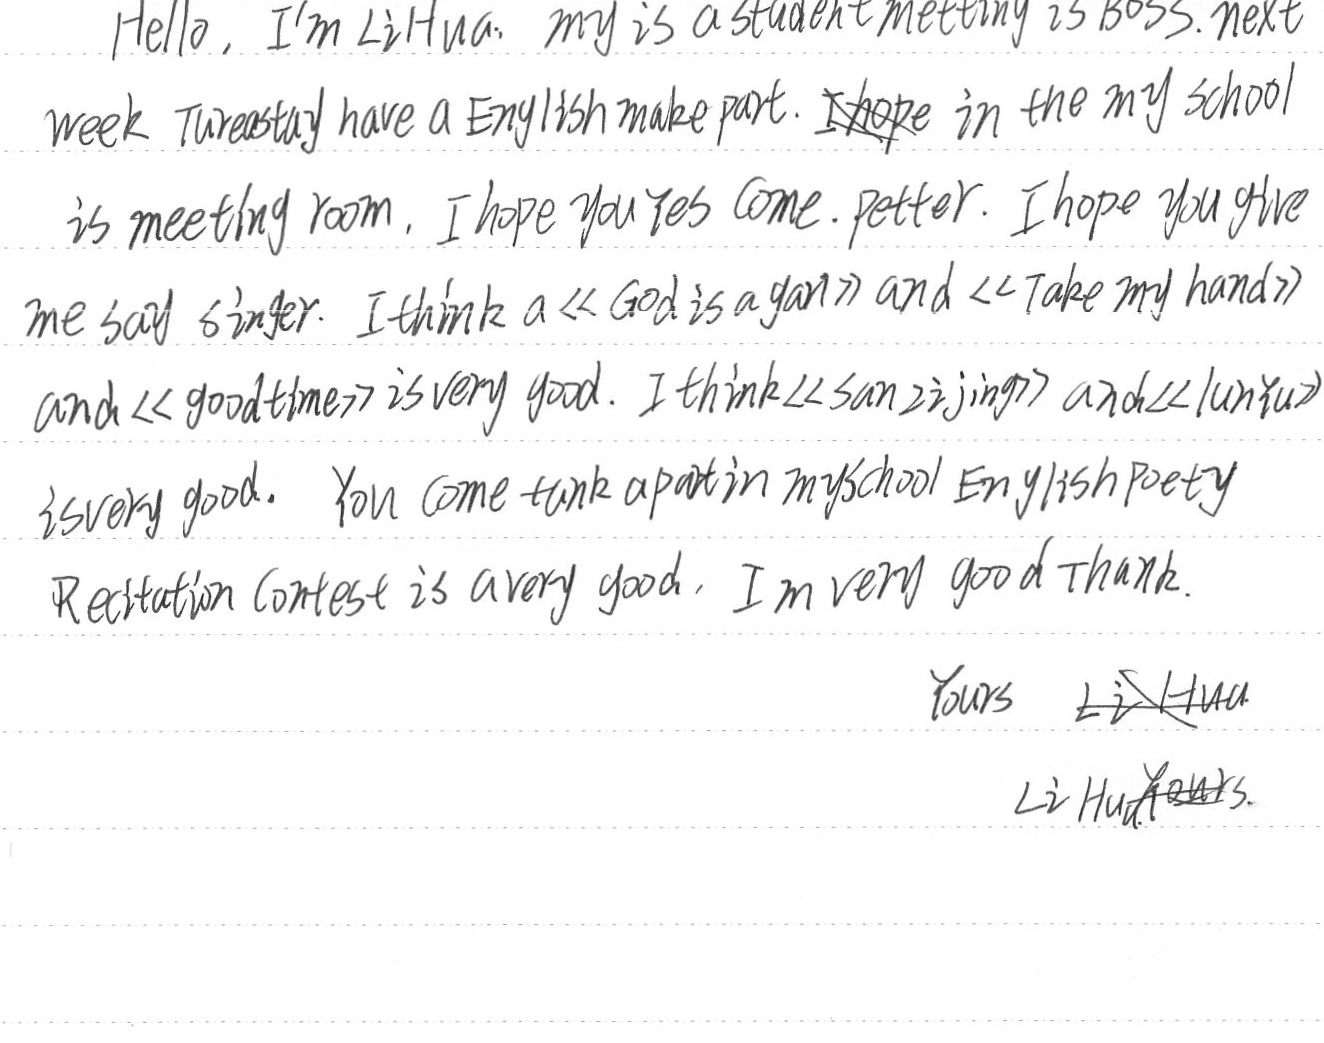 Hello, I'm LiHua. my is a student metting is Boss. next
week Tureastay have a English make part. in the my school
is meeting room. I hope you Yes Come. petter. I hope you give
me say singer. I think a << God is a gan >> and << Take my hand >>
and << good time >> is very good. I think << san zi jing >> and << lunYu >>
is very good. You Come tank apart in myschool English Poety
Recitation Contest is avery good. I m very good Thank.
Yours
Li Hua